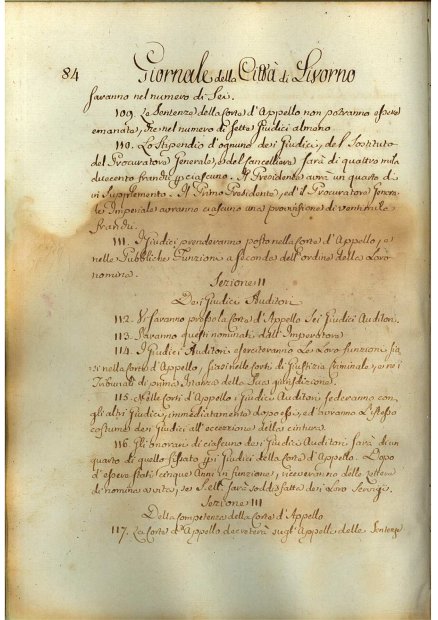 84 Giornale della Città di Livorno
saranno nel numero di Sei.
109. Le Sentenze della Corte d'Appello non potranno essere
emanate, che nel numero di Sette Giudici almeno.
110. Lo Stipendio d'ognuno dei Giudici, del Sostituto
del Procuratore Generale, e del Cancelliere sarà di quattro mila
duecento franchi p ciascuno. Il Presidente avrà un quarto di
in Supplemento. Il Primo Presidente, ed il Procuratore Gene=
rale Imperiale avranno ciascuno una provvisione di ventimila
franchi.
111. I Giudici prenderanno posto nella Corte d'Appello, e
nelle Pubbliche Funzioni a seconda dell'ordine della Loro
nomina.
Sezione II
Dei Giudici Auditori
112. Vi saranno presso la Corte d'Appello Sei Giudici Auditori.
113. Saranno questi nominati dall'Imperatore
114. I Giudici Auditori eserciteranno le Loro funzioni sia
nella Corte d'Appello, sia nelle Corti di Giustizia Criminale, o nei
Tribunali di prima Istanza della Sua giurisdizione.
115. Nelle Corti d'Appello i Giudici Auditori sederanno con
gli altri Giudici, immediatamente dopo essi, ed avranno l'istesso
costume dei Giudici all'eccezione della cintura.
116. Gli onorari di ciascuno dei Giudici Auditori sarà di un
quarto di quello fissato p i Giudici della Corte d'Appello. Dopo
d'essere stati cinque Anni in funzione, riceveranno delle Lettere
di nomina a vita, se S. M. sarà soddisfatta dei Loro Servigi.
Sezione III
Della Competenza della Corte d'Appello
117. La Corte d'Appello decreterà sugl'Appelli delle Sentenze